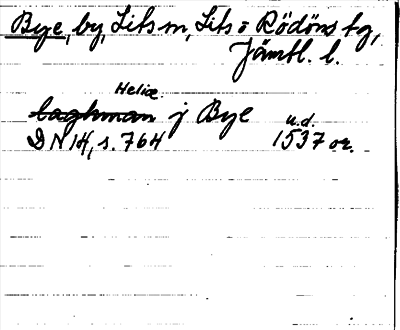 Bye, by, Lits sn, Lits o Rödöns tg,
Jämtl. l.
Helie
laghman j Bye u.d.
DN 14, s. 764 1537 or.